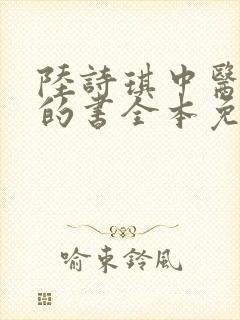 陸詩琪中醫
的書全本免
喻東鈴風